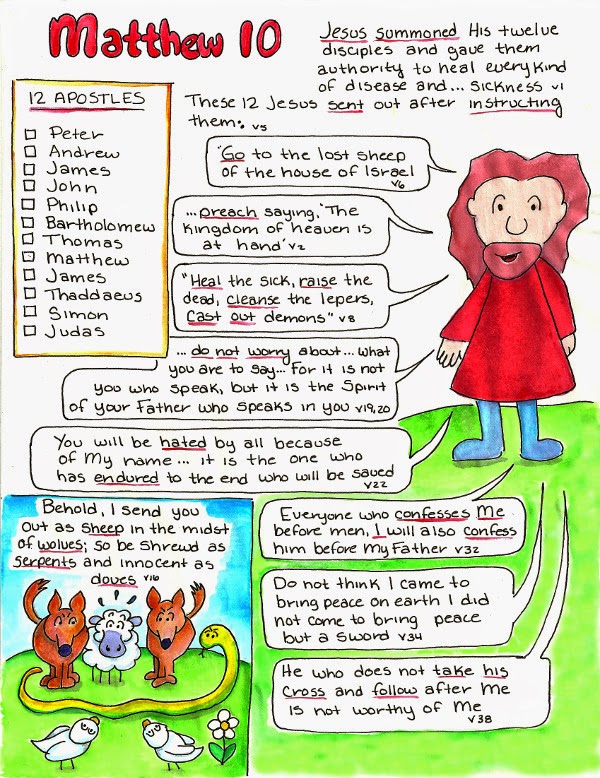 Matthew 10
Jesus summoned His twelve
disciples and gave them
authority to heal every kind
of disease and... sickness v1
12 APOSTLES
Peter
Andrew
James
John
Philip
Bartholomew
Thomas
matthew
James
Thaddaeus
Simon
Judas
These 12 Jesus sent out after instructing
them: v5
"Go to the lost sheep
of the house of Israel
v6
...preach saying, 'The
kingdom of heaven is
at hand' v2
"Heal the sick, raise the
dead, cleanse the lepers,
cast out demons" v8
... do not worry about... what
you are to say... For it is not
you who speak, but it is the Spirit
of your Father who speaks in you v19,20
You will be hated by all because
of My name... it is the one who
has endured to the end who will be saved
v22
Behold, I send you
out as sheep in the midst
of wolves; so be shrewd as
serpents and innocent as
doves v16
Everyone who confesses Me
before men, I will also confess
him before My Father v32
Do not think I came to
bring peace on earth I did
not come to bring peace
but a sword v34
He who does not take his
cross and follow after Me
is not worthy of Me
v38